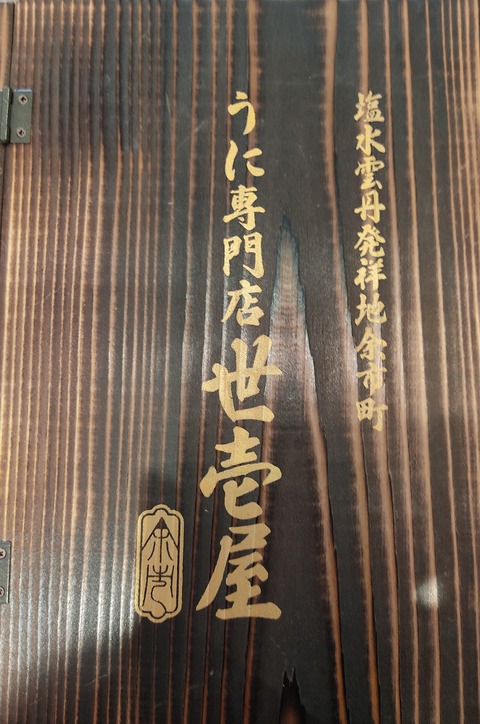 塩水雲丹発祥地余市町
うに専門店世壱屋
余市